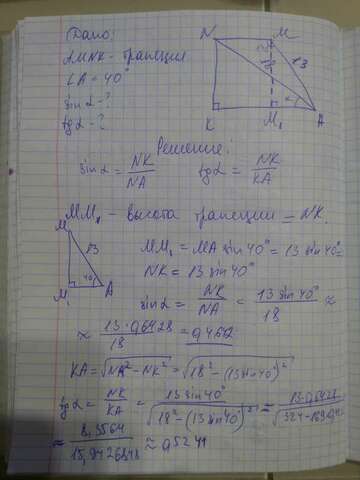 Дано:
AMNK - трапеция
∠A = 40°
sin α - ?
tg α - ?
N M
13
α
K M₁ A
Решение:
sin α = NK/NA tg α = NK/KA
MM₁ - высота трапеции = NK.
M
13
40°
M₁ A
MM₁ = MA sin 40° = 13 sin 40° =
NK = 13 sin 40°
sin α = NK/NA = 13 sin 40°/18 ≈
≈ 13·0,6428/18 = 0,4642
KA = √(NA² - NK²) = √(18² - (13 sin 40°)²)
tg α = NK/KA = 13 sin 40°/√(18² - (13 sin 40°)²) =
≈ 8,3564/15,9426848 ≈ 0,5241